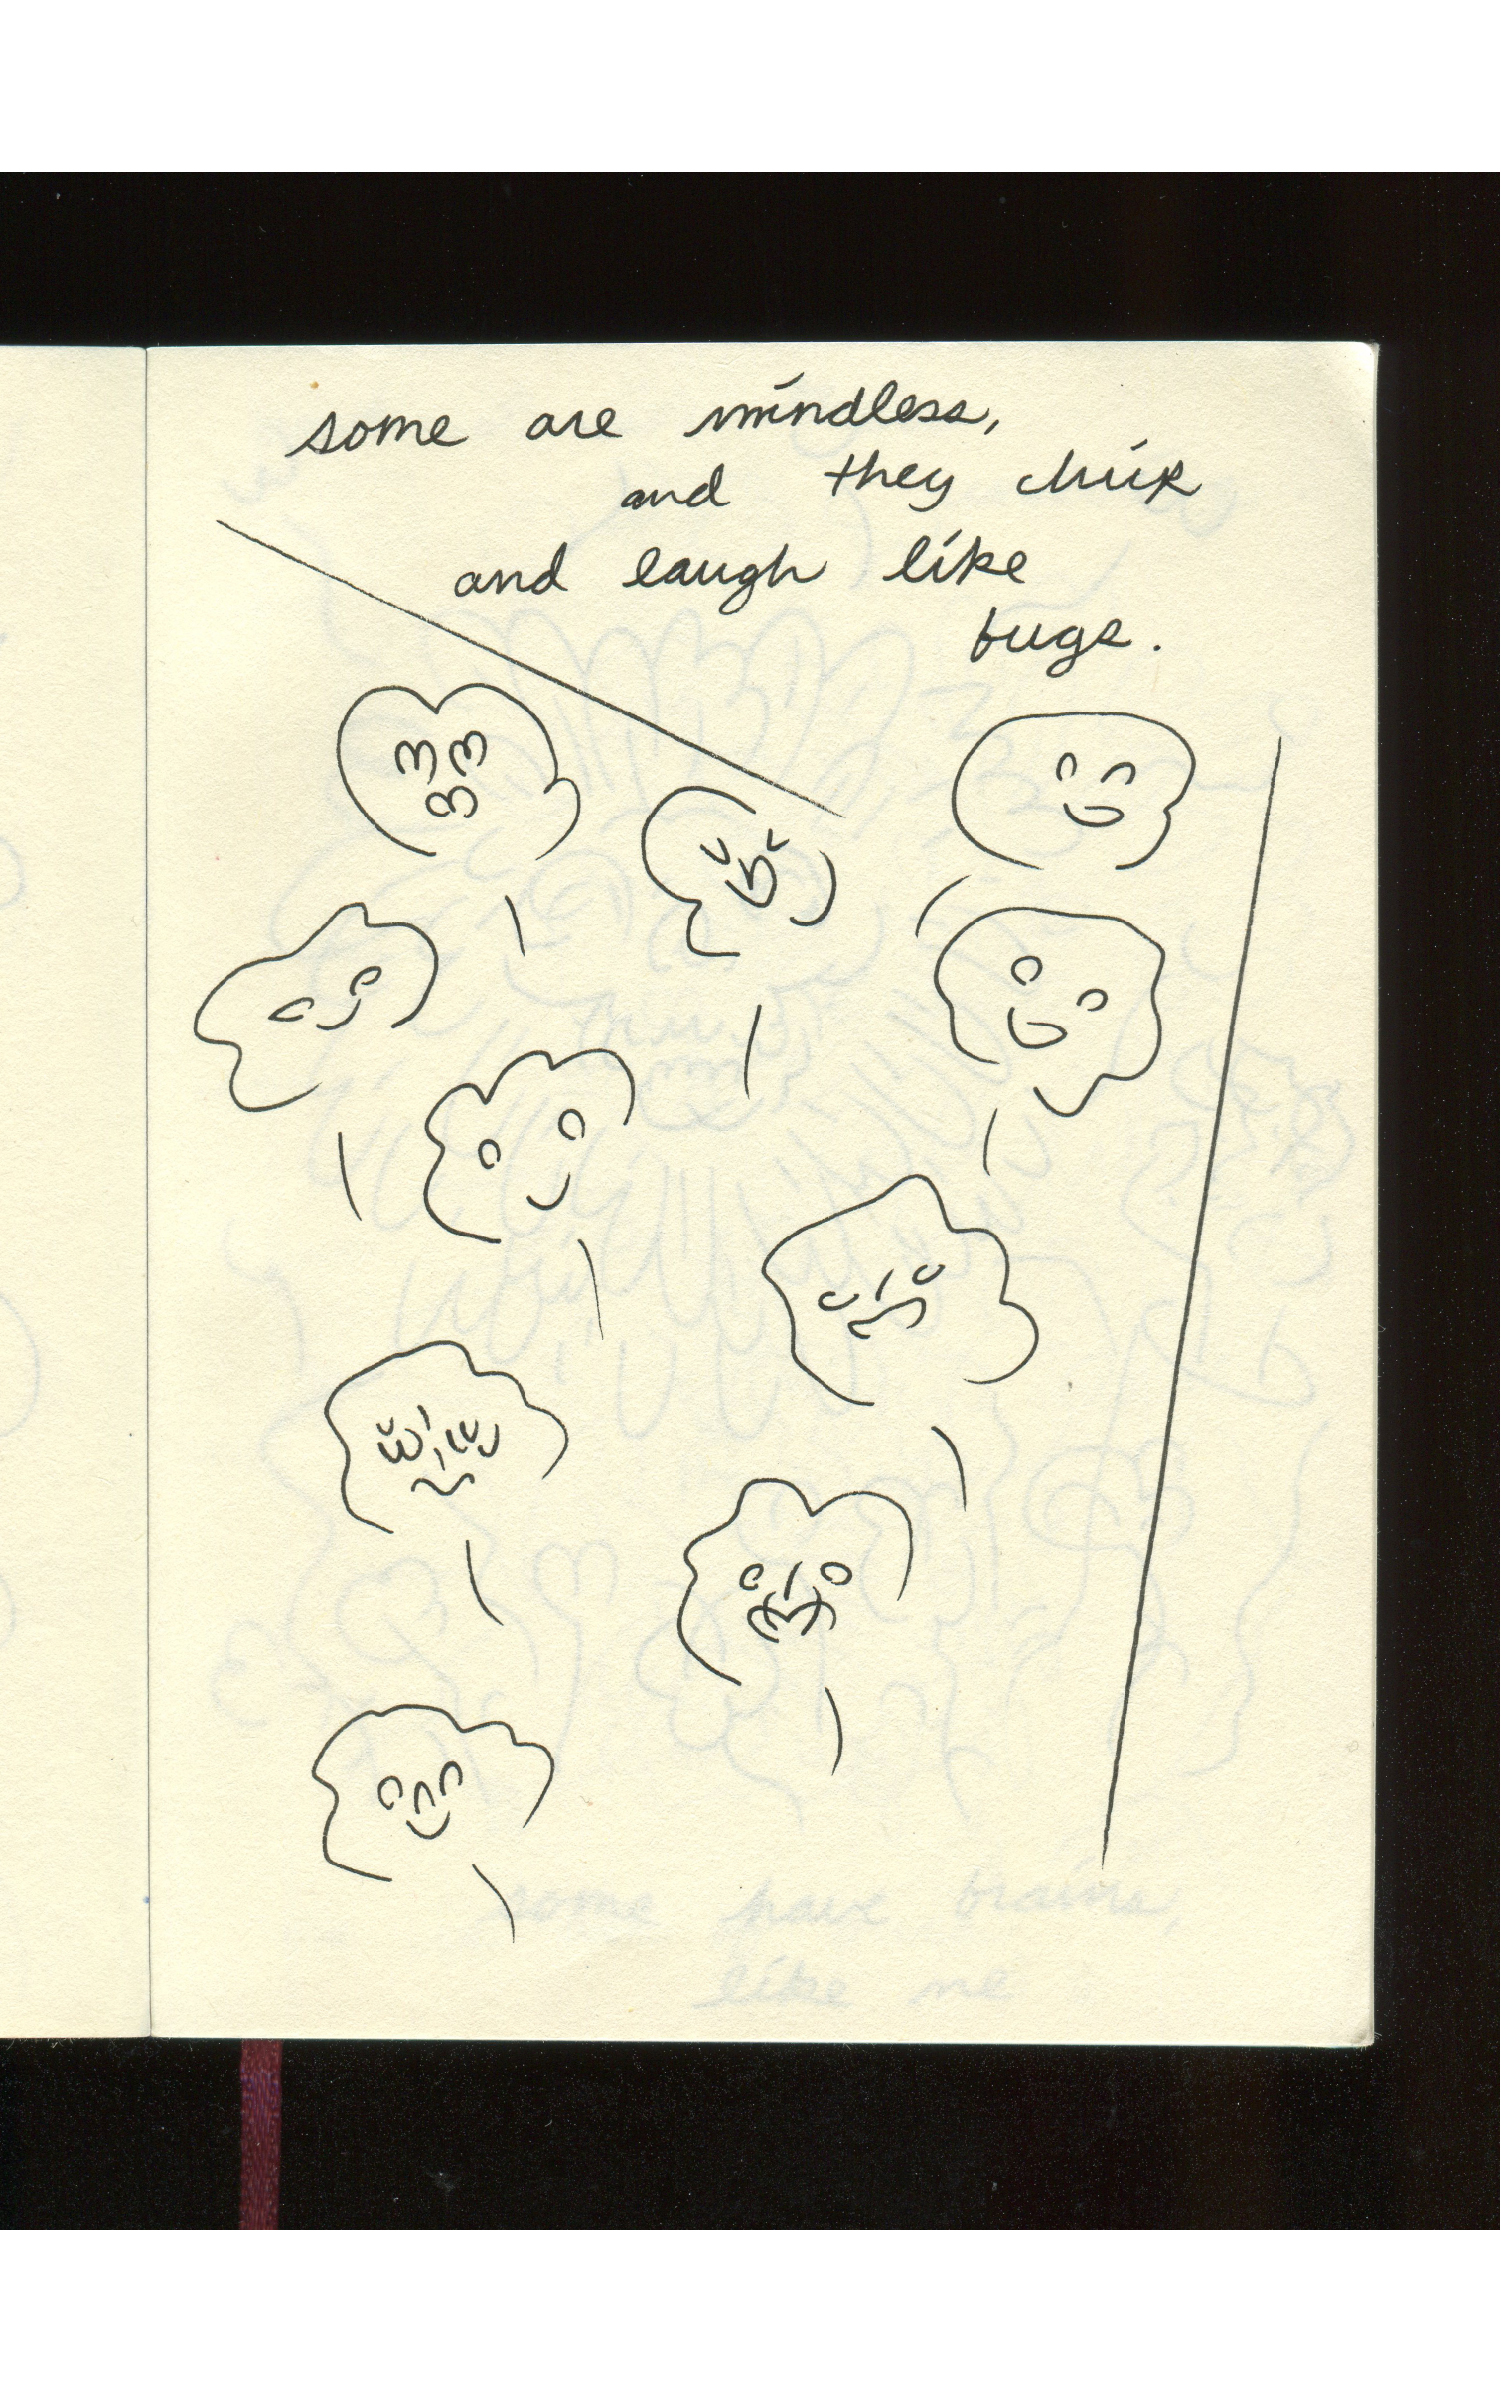 some are mindless,
and they
and laugh like
bugs.
some have brains,
like me